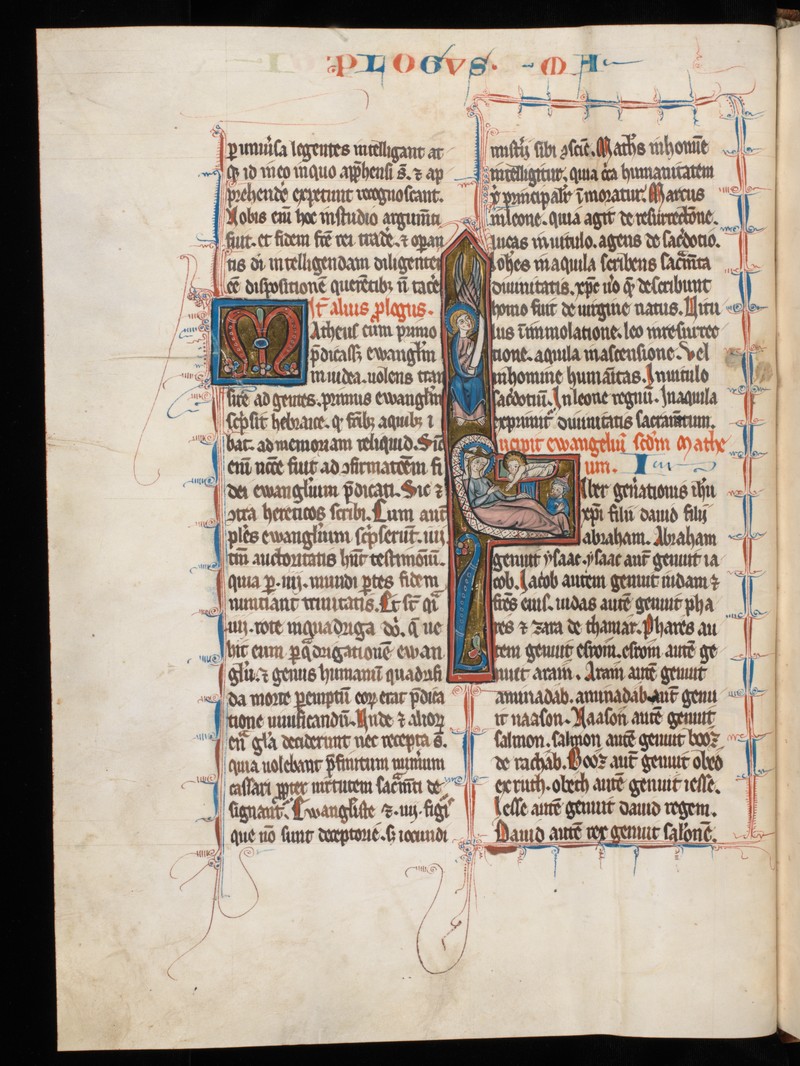 PLOGUS. MA
p uniu'sa legentes intelligant at
q; id in eo in quo app̄hensi s̄. ⁊ ap
prehende' expetunt recognoscant.
Nobis eni hoc in studio argum̄ti
fuit. et fidem f̄c̄e rei trade'. ⁊ op̄an
tis di intelligendam diligenter
c̄ē dispositionē querētib; ñ tac'e
It̄ alius plogus.
Matheus cum primo
p̄dicass; ewangl̄m
in iudea. uolens tran
sire ad gentes. primus ewangl̄m
sc̄psit hebraice. q̄ frib; a quib; i
bat. ad memoriam reliquid. Sic̄
eni nēc̄e fuit ad ↄfirmat̄ēm fi
dei ewangl̄ium p̄dicari. Sic ⁊
ↄtra hereticos scribi. Cum aut̄
pl̄es ewangl̄ium sc̄pserūt. iiij
tm̄ auctoritatis hn̄t testimōiū.
quia p. iiij. mundi p̄tes fidem
nuntiant trinitatis. Et st̄ q̄i
iiij. rote in quadriga dōi. q̄ ue
hit eum p q̄drigationē ewan
glīi. ⁊ genus humanū quadrifi
da morte pemptū eoꝝ erat p̄dica
tione uiuificandū. Unde ⁊ alioꝝ
en̄ gl̄a deciderunt nec recepta s̄.
quia nolebant
cassari ppter uirtutem sac̄mti de
signant̄. Ewangliste ⁊. iiij. figi
que nō sunt deceptorie. s; iocundi
mist'ij sibi ↄscīē. Math's in homīe
intelligitur. quia c̄ca humanitatem
x̄p̄i principalit' īmoratur. Marcus
in leone. quia agit de resurrectōne.
Lucas in uitulo. agens de sac̄dotio.
Joh̄es in aquila scribens sac̄m̄ta
diuinitatis. xp̄c u'o q̄ describunt
homo fuit de uirgine natus. Uitu
lus ī immolatione. leo in resurrec
tione. aquila in ascensione. Vel
in homine humaītas. In uitulo
sac̄dotiū. In leone regnū. In aquila
exprimit' diuinitatis sacramtum.
Incipit ewangeliū sc̄dm Mathe
um. I
Liber gen̄ationis ih̄u
xp̄i filii dauid filij
abraham. Abraham
genuit ysaac. ysaac aut̄ genuit ia
cob. Jacob autem genuit iudam ⁊
fr̄es eius. iudas autē genuit pha
res ⁊ zara de thamar. Phares au
tem genuit esrom. esrom autē ge
nuit aram. Aram autē genuit
aminadab. aminadab aut̄ genu
it naason. Naason autē genuit
salmon. salmon autē genuit booz
de rachab. Booz aut̄ genuit obeð
ex ruth. obeth autē genuit iesse.
Iesse autē genuit dauid regem.
Dauid autē rex genuit salomē.